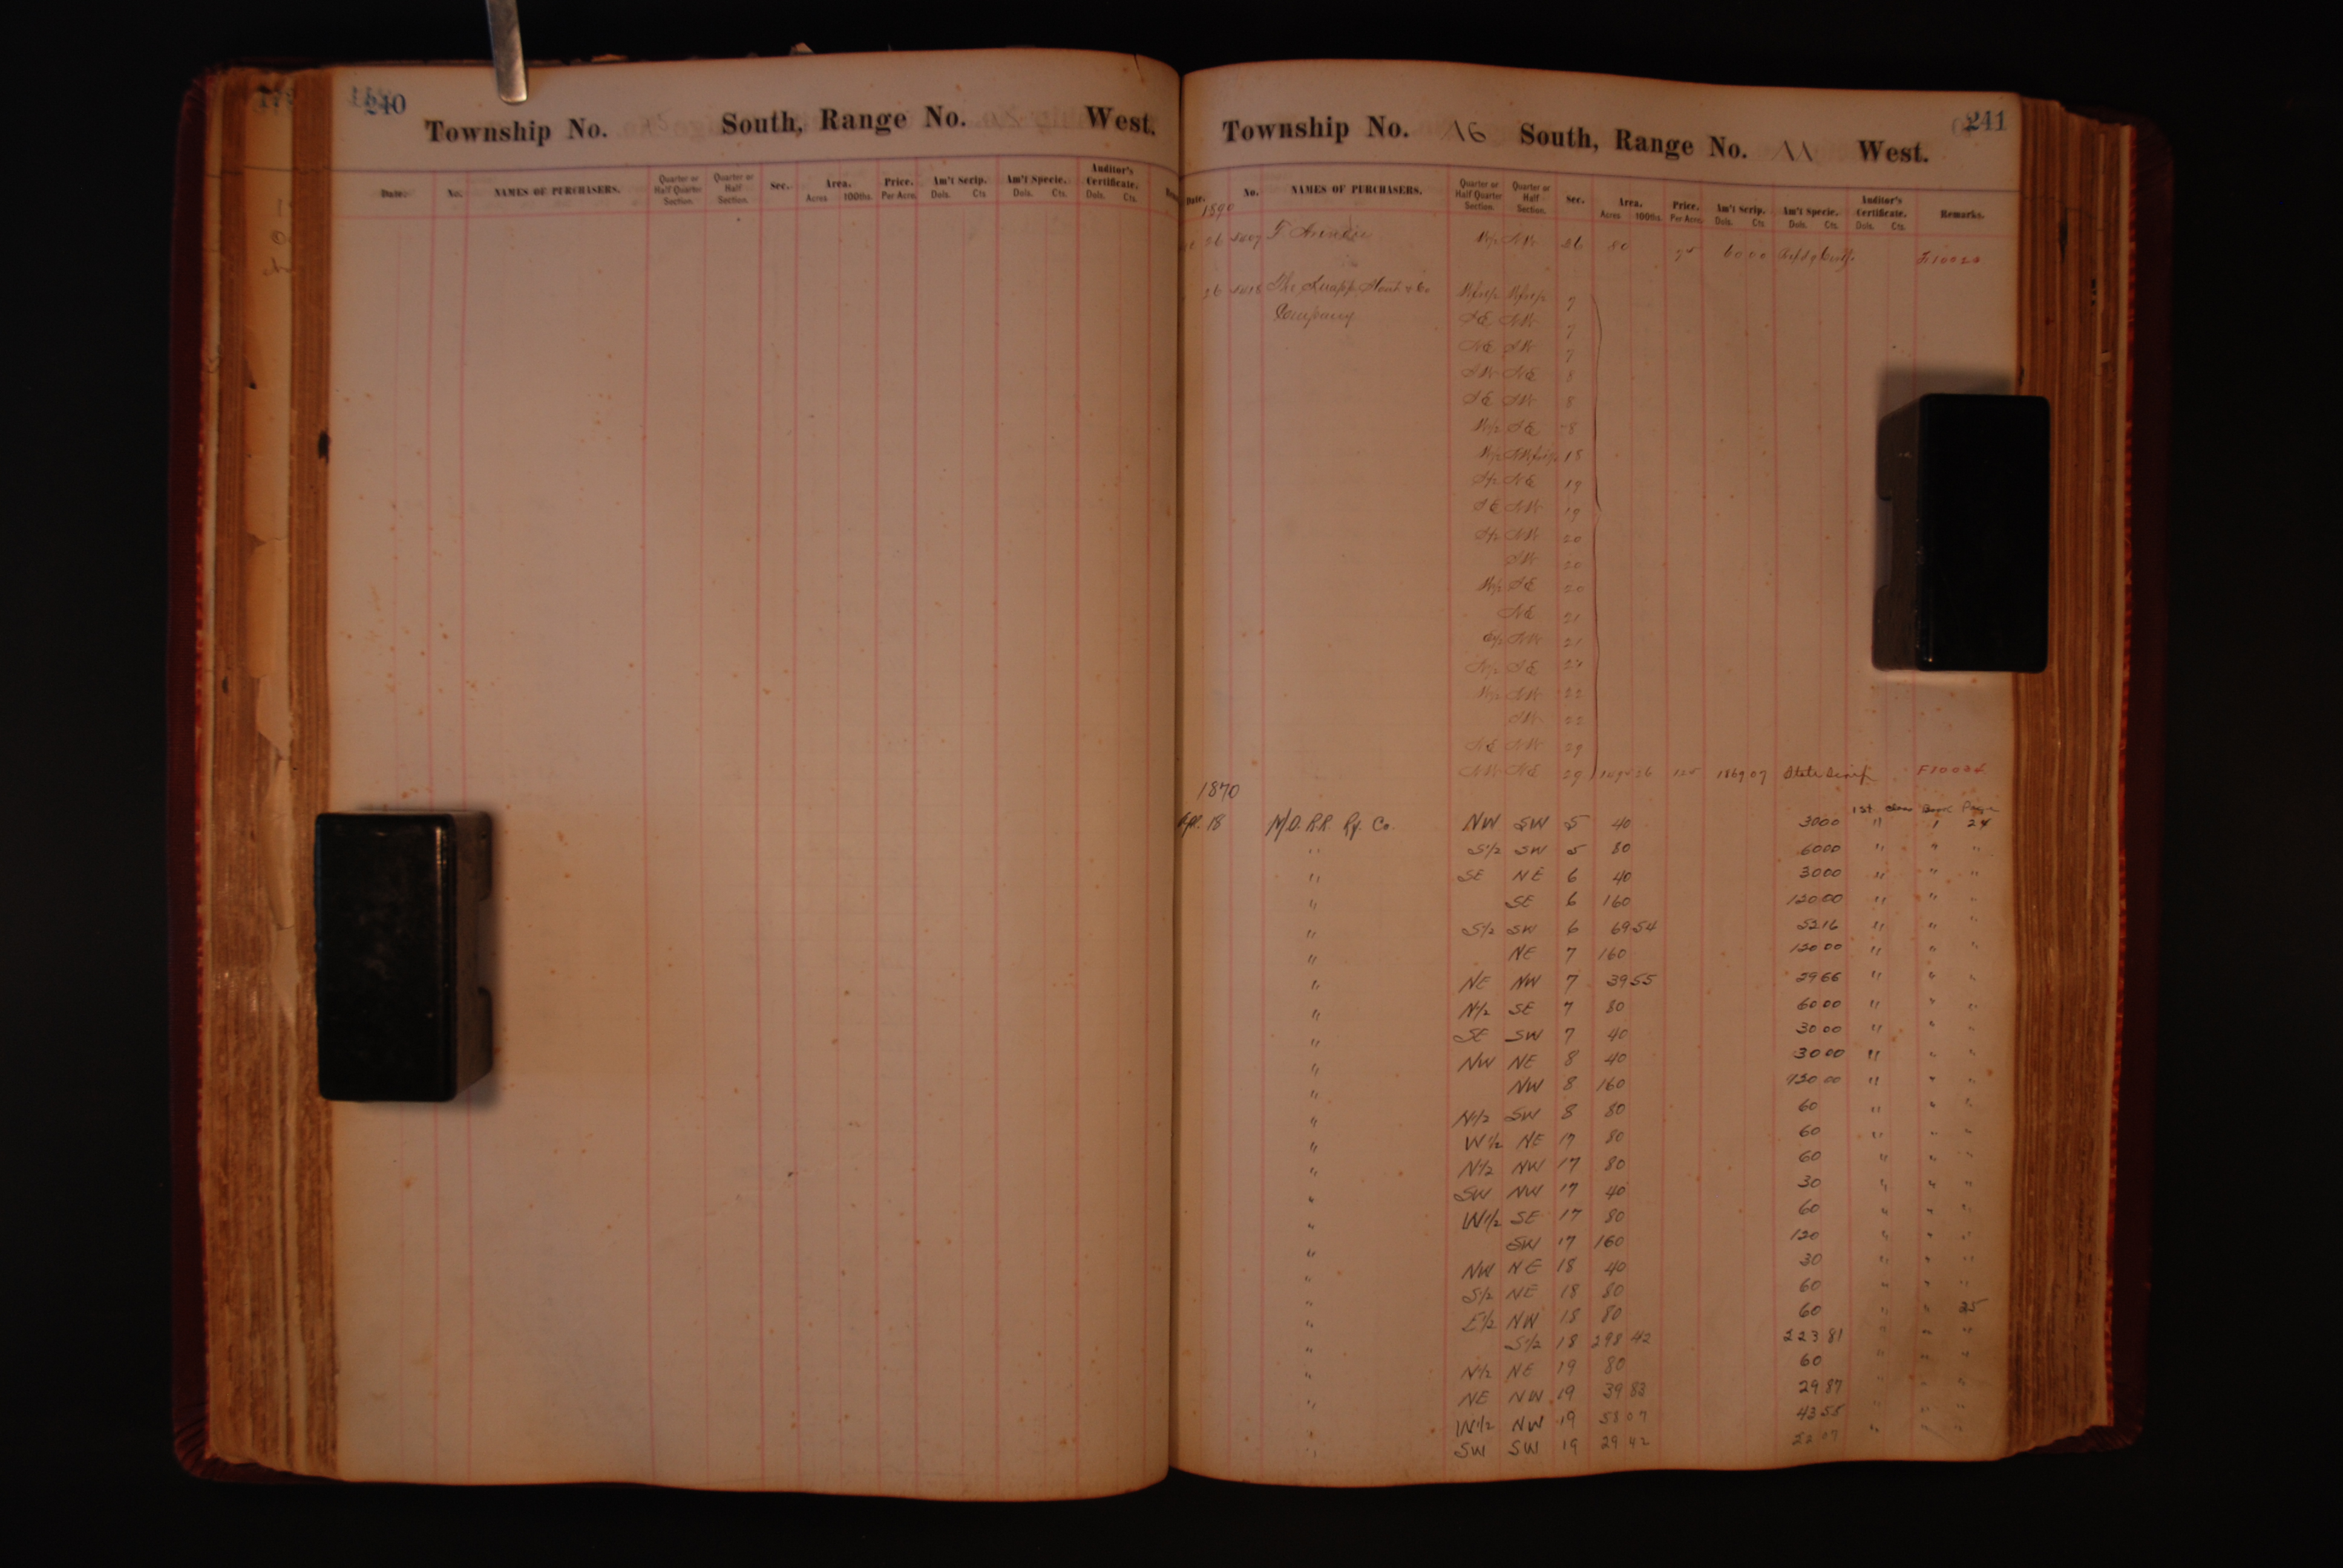 240
Township No. South, Range No. West.
Date. No. NAMES OF PURCHASERS. Quarter or Half Quarter Section. Quarter or Half Section. Sec. Area. Acres 100ths. Price. Per Acre. Am't Scrip. Dols. Cts Am't Specie. Dols. Cts. Auditor's Certificate. Dols. Cts.
241
Township No. 16 South, Range No. 11 West.
Date. No. NAMES OF PURCHASERS. Quarter or Half Quarter Section. Quarter or Half Section. Sec. Area. Acres 100ths. Price. Per Acre. Am't Scrip. Dols. Cts Am't Specie. Dols. Cts. Auditor's Certificate. Dols. Cts. Remarks.
1890
26 W1/2 NW 26 80 75 60 00
26 The Knapp Stout & Co 7
Company SE NW 7
NE SW 7
SW NE 8
SE SW 8
W1/2 SE 8
W1/2 18
S1/2 NE 19
SE NW 19
S1/2 NW 20
SW 20
W1/2 SE 20
NE 21
E1/2 NW 21
N1/2 SE
W1/2 NW 22
SW 22
NE NW 29
NW NE 29 125 1869 07 State Scrip
1870
1st Class Book Page
Apr. 18 NW SW 5 40 3000 " 1 24
" S1/2 SW 5 80 6000 " " "
" SE NE 6 40 3000 " " "
" SE 6 160 12000 " " "
" S1/2 SW 6 69 54 5216 " " "
" NE 7 160 12000 " " "
" NE NW 7 39 55 2966 " " "
" N1/2 SE 7 80 6000 " " "
" SE SW 7 40 3000 " " "
" NW NE 8 40 3000 " " "
" NW 8 160 12000 " " "
" N1/2 SW 8 80 60 " " "
" W1/2 NE 17 80 60 " " "
" N1/2 NW 17 80 60 " " "
" SW NW 17 40 30 " " "
" W1/2 SE 17 80 60 " " "
" SW 17 160 120 " " "
" NW NE 18 40 30 " " "
" S1/2 NE 18 80 60 " " "
" E1/2 NW 18 80 60 " " 25
" S1/2 18 298 42 223 81 " " "
" N1/2 NE 19 80 60 " " "
" NE NW 19 39 83 29 87 " " "
" W1/2 NW 19 58 07 43 55 " " "
" SW SW 19 29 42 22 07 " " "